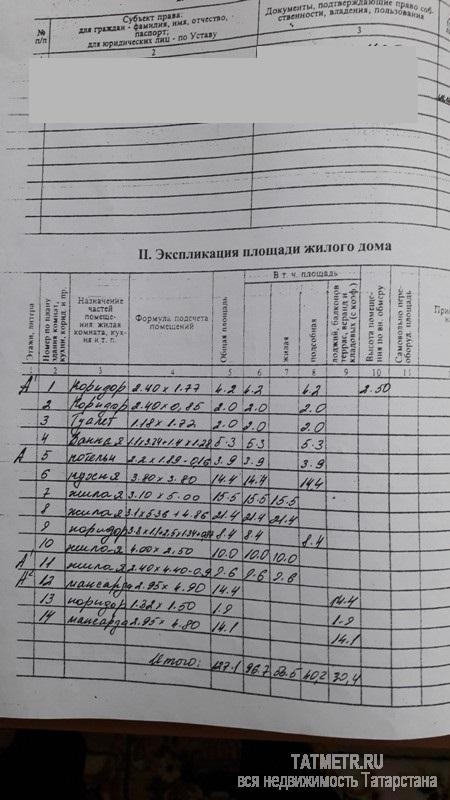 № п/п
Субъект права:
для граждан - фамилия, имя, отчество,
паспорт;
для юридических лиц - по Уставу
Документы, подтверждающие право соб-
ственности, владения, пользования
2
3
II. Экспликация площади жилого дома
Этажи, литера
Номер по плану
здания комнат,
кухни, корид. и пр.
Назначение
частей
помеще-
ния: жилая
комната, кух-
ня и т. п.
Формула подсчета
помещений
Общая площадь
В т. ч. площадь
жилая
подсобная
лоджий, балконов
террас, веранд и
кладовых (с коэф.)
Высота помеще-
ния по вн. обмеру
Самовольно пере-
оборуд. площадь
1 2 3 4 5 6 7 8 9 10 11
А¹ 1 Коридор 2.40 x 1.77 4.2 4.2 4.2 2.50
2 Коридор 2.40 x 0,85 2.0 2.0 2.0
3 Туалет 1.18 x 1.72 2.0 2.0 2.0
4 Ванная 5.3 5.3 5.3
А 5 котельн 3.9 3.9 3.9
6 кухня 3.80 x 3.80 14.4 14.4 14.4
7 жилая 3.10 x 5.00 15.5 15.5 15.5
8 жилая 21.4 21.4 21.4
9 коридор 8.4 8.4 8.4
10 жилая 4.00 x 2.50 10.0 10.0 10.0
А¹ 11 жилая 2.40 x 4.40-0,9 9.6 9.6 9.6
А² 12 мансарда 2.95 x 4.90 14.4 14.4
13 коридор 1.22 x 1.50 1.9 1.9
14 мансарда 2.95 x 4.80 14.1 14.1
Итого: 127.1 96.7 56.5 40,2 30,4
TATMETR.RU
вся недвижимость Татарстана